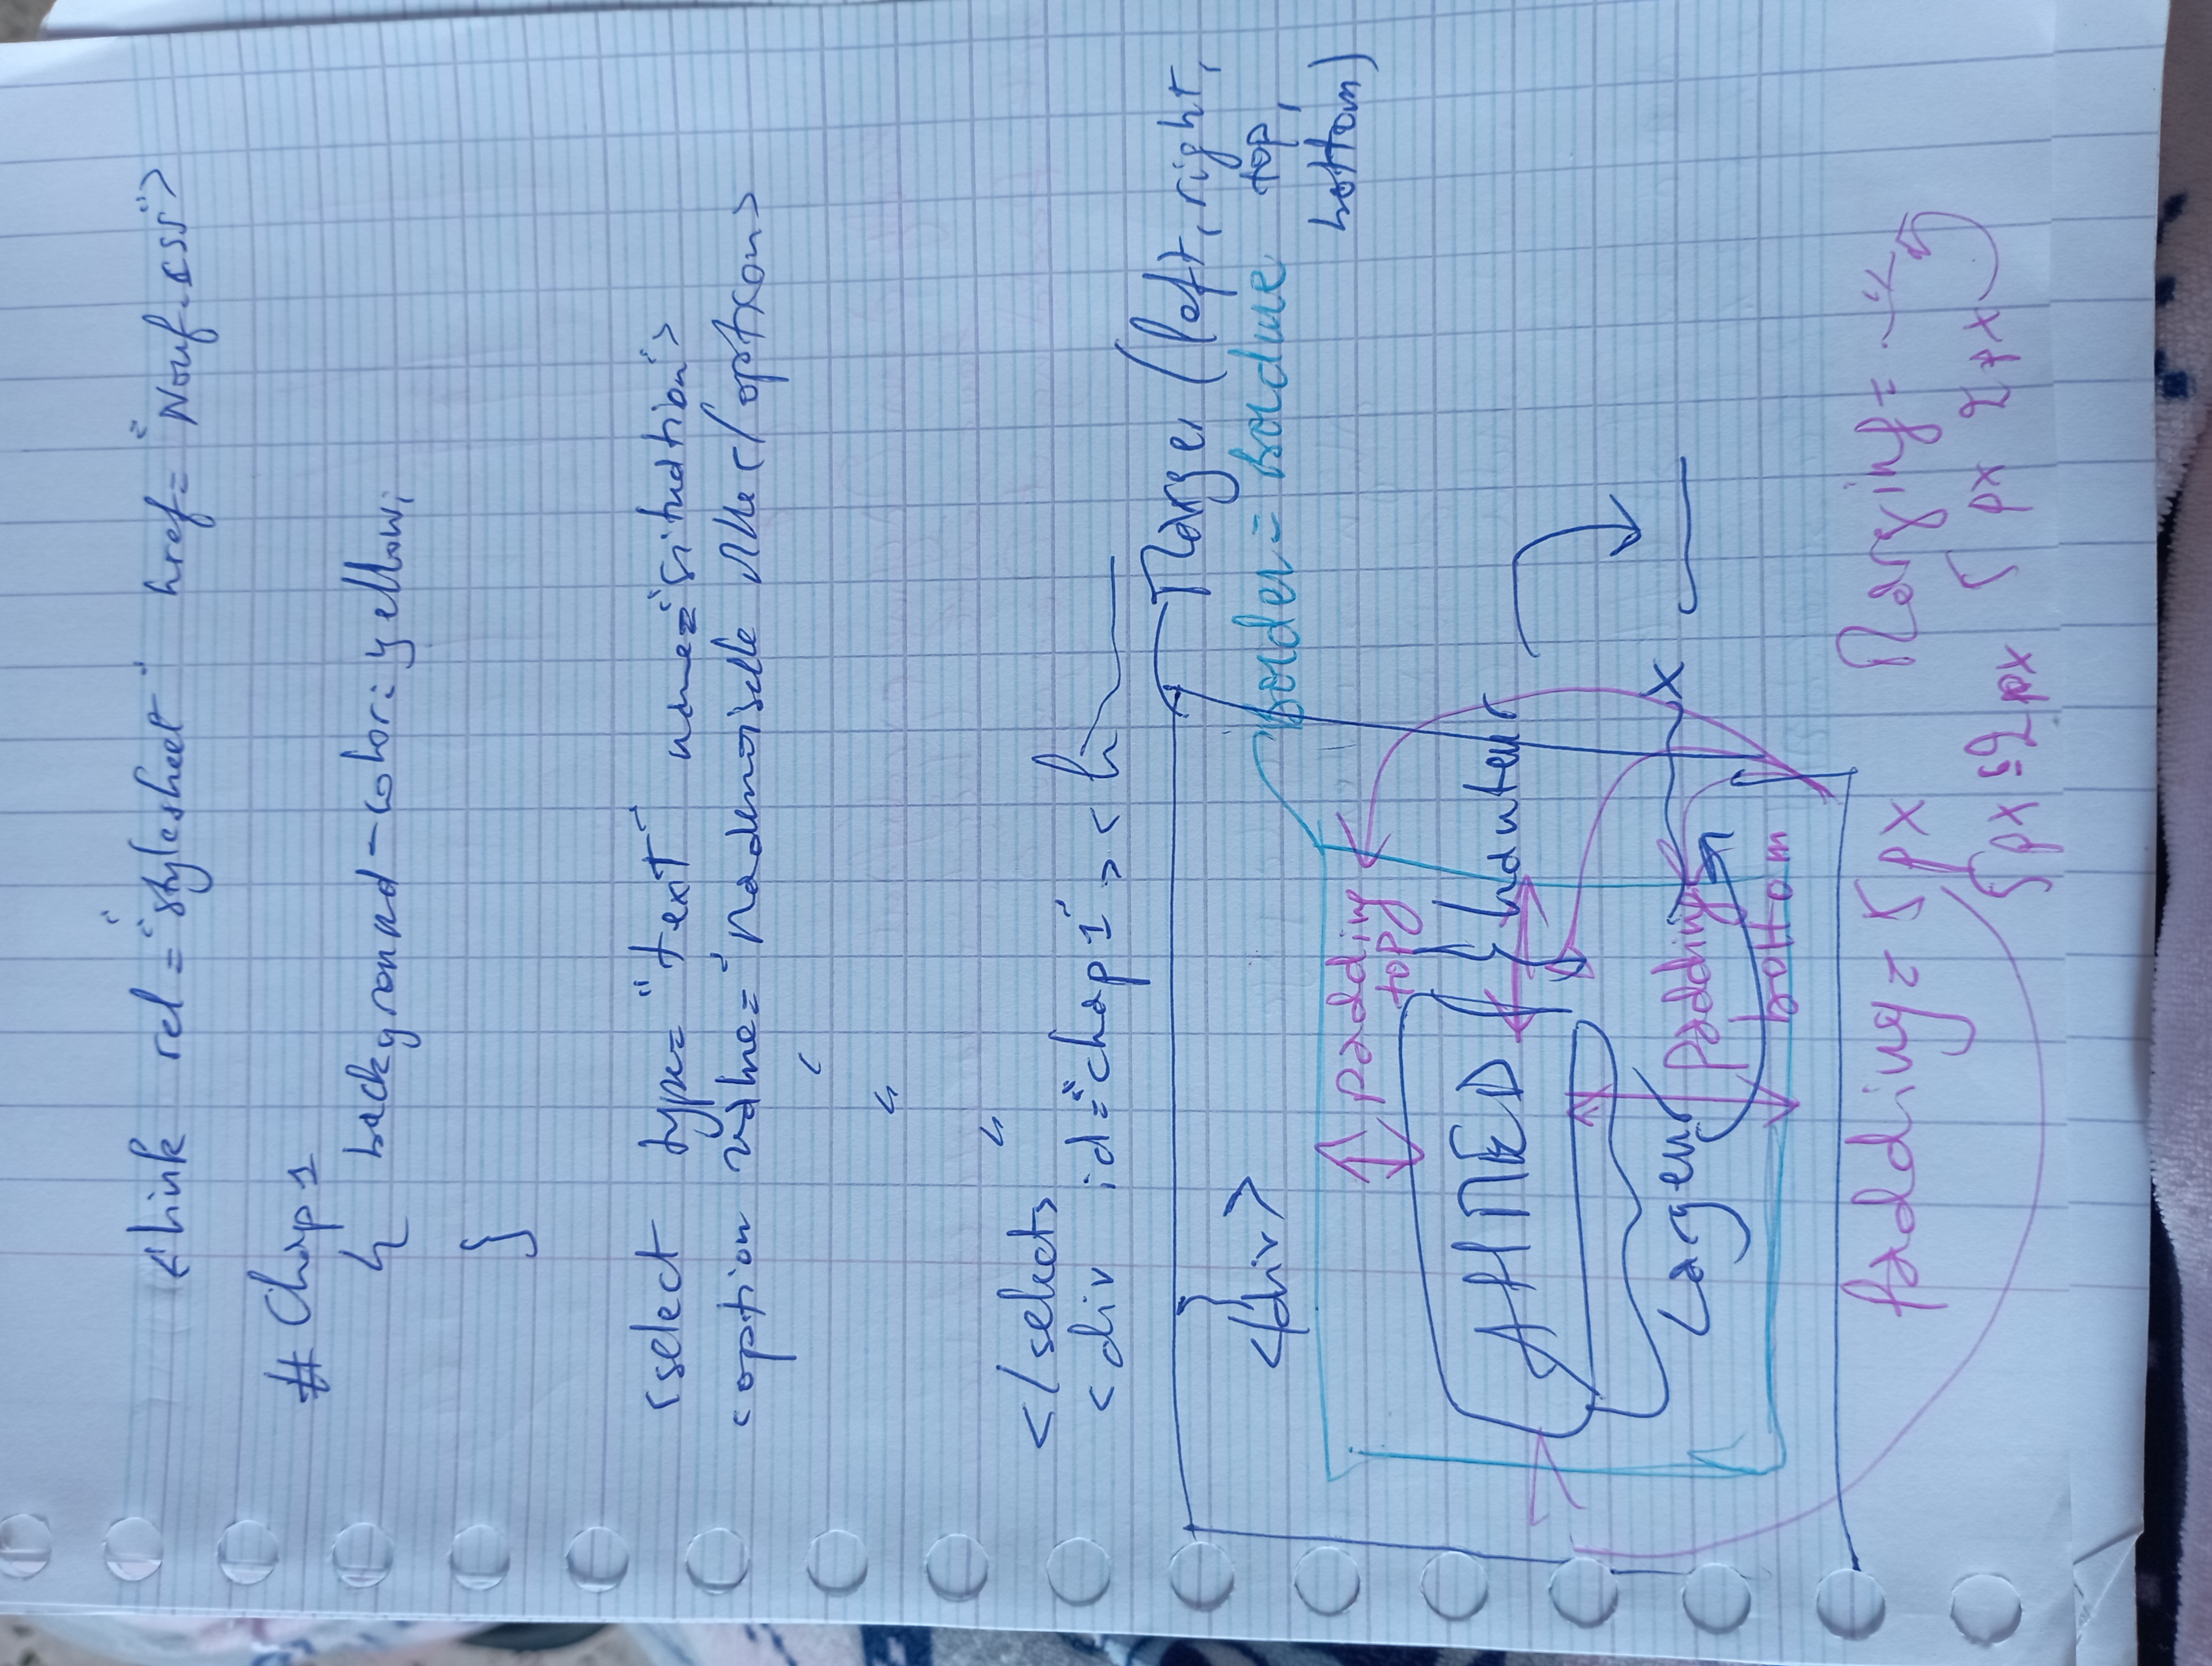 <link rel="stylesheet" href="Nouf.css">
# Chap1
{ background-color: yellow;
}
<select type="text" name="situation">
<option value="Mademoiselle Mlle </option>
"
"
"
</select>
<div id="chap1"> <h
Marge (left, right,
top,
bottom)
</div>
border = bordure
padding
top
AHMED
hauteur
Largeur
x
padding
bottom
padding = 5px
5px 2px
5 px 2px